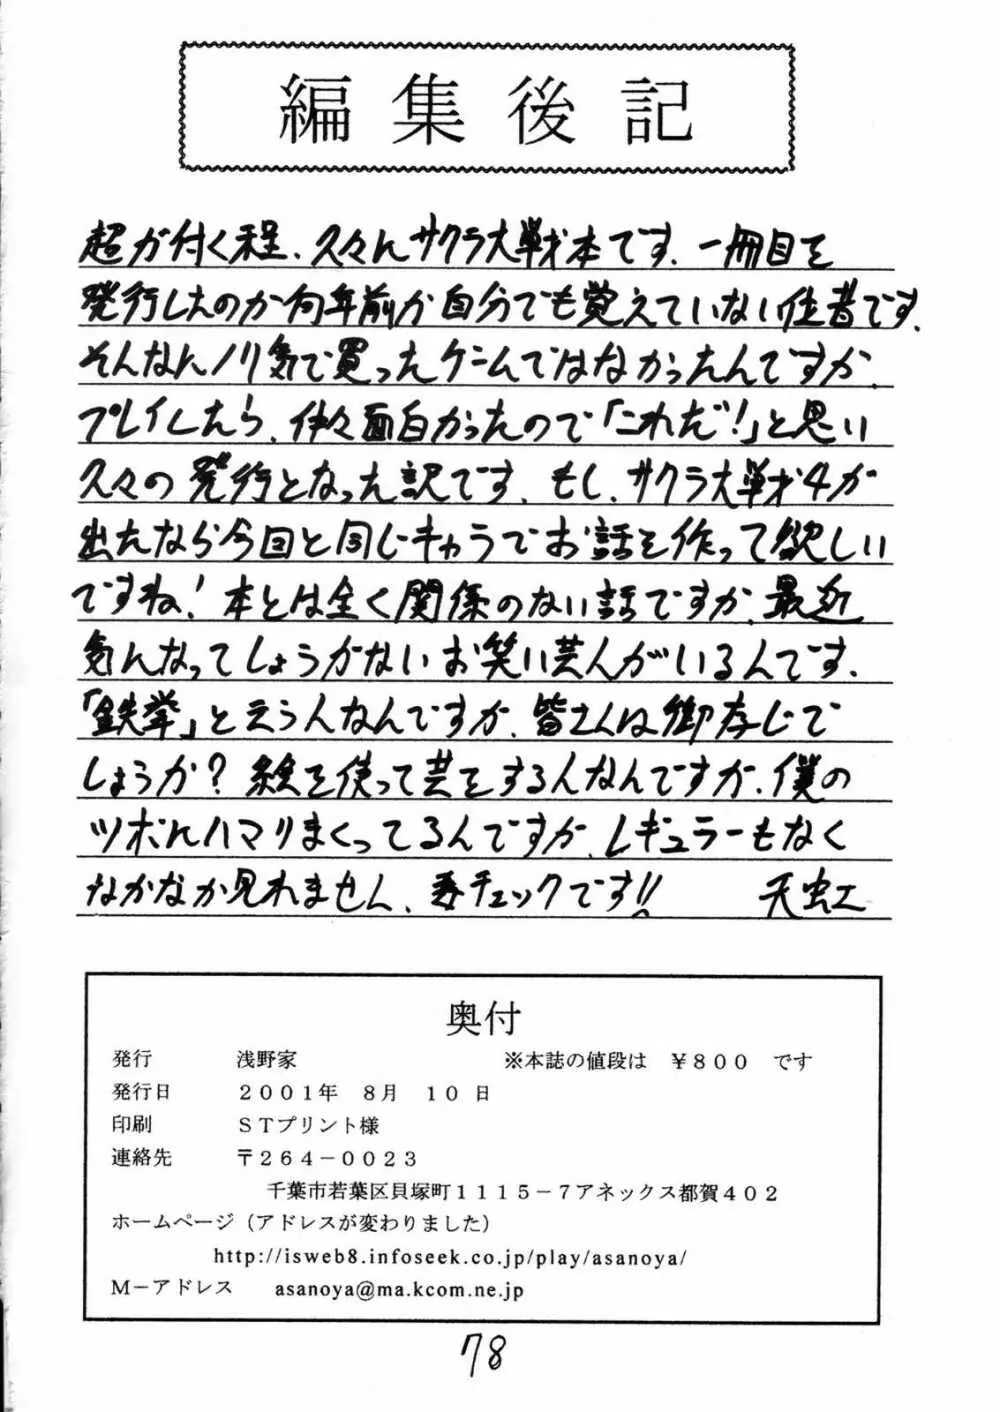 編集後記
超が付く程、久々にサクラ大戦本です。一冊目を
発行したのが何年前か自分でも覚えていない作者です。
そんなにノリ気で買ったゲームではなかったんですが、
プレイしたら、中々面白かったので「これだ!」と思い
久々の発行となった訳です。もし、サクラ大戦4が
出たなら今回と同じキャラでお話を作って欲しい
ですね!本とは全く関係のない話ですが、最近
気になってしょうがないお笑い芸人がいるんです。
「鉄拳」と云う人なんですが、皆さんは御存じで
しょうか?絵を使って芸をする人なんですが、僕の
ツボにハマりまくってるんですが、レギュラーもなく
なかなか見れません、要チェックです!! 天虫工
奥付
発行 浅野家 ※本誌の値段は ¥800 です
発行日 2001年 8月 10日
印刷 STプリント様
連絡先 〒264-0023
千葉市若葉区貝塚町1115-7アネックス都賀402
ホームページ(アドレスが変わりました)
http://isweb8.infoseek.co.jp/play/asanoya/
M-アドレス asanoya@ma.kcom.ne.jp
78